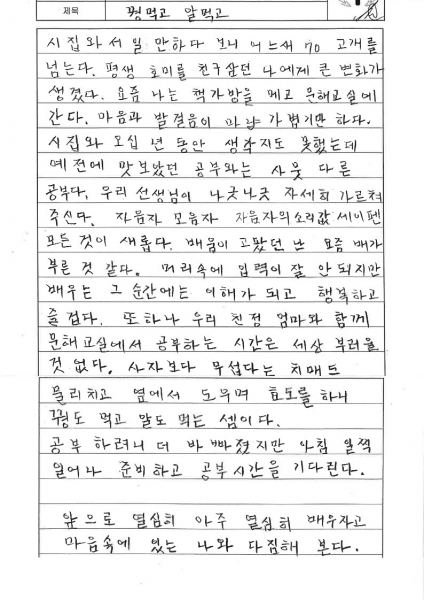 제목 꿩먹고 알먹고
시집와서 일만하다 보니 어느새 70 고개를
넘는다. 평생 호미를 친구삼던 나에게 큰 변화가
생겼다. 요즘 나는 책가방을 메고 문해교실에
간다. 마음과 발걸음이 마냥 가볍기만 하다.
시집와 오십 년 동안 생각지도 못했는데
예전에 맛보았던 공부와는 사뭇 다른
공부다. 우리 선생님이 나긋나긋 자세히 가르쳐
주신다. 자음자 모음자 자음자의 소리값 세이펜
모든 것이 새롭다. 배움이 고팠던 난 요즘 배가
부른 것 같다. 머리속에 입력이 잘 안되지만
배우는 그 순간에는 이해가 되고 행복하고
즐겁다. 또하나 우리 친정 엄마와 함께
문해교실에서 공부하는 시간은 세상 부러울
것 없다. 사자보다 무섭다는 치매도
물리치고 옆에서 도우며 효도를 하니
꿩도 먹고 알도 먹는 셈이다.
공부 하려니 더 바빠졌지만 아침 일찍
일어나 준비하고 공부시간을 기다린다.
앞으로 열심히 아주 열심히 배우자고
마음속에 있는 나와 다짐해 본다.